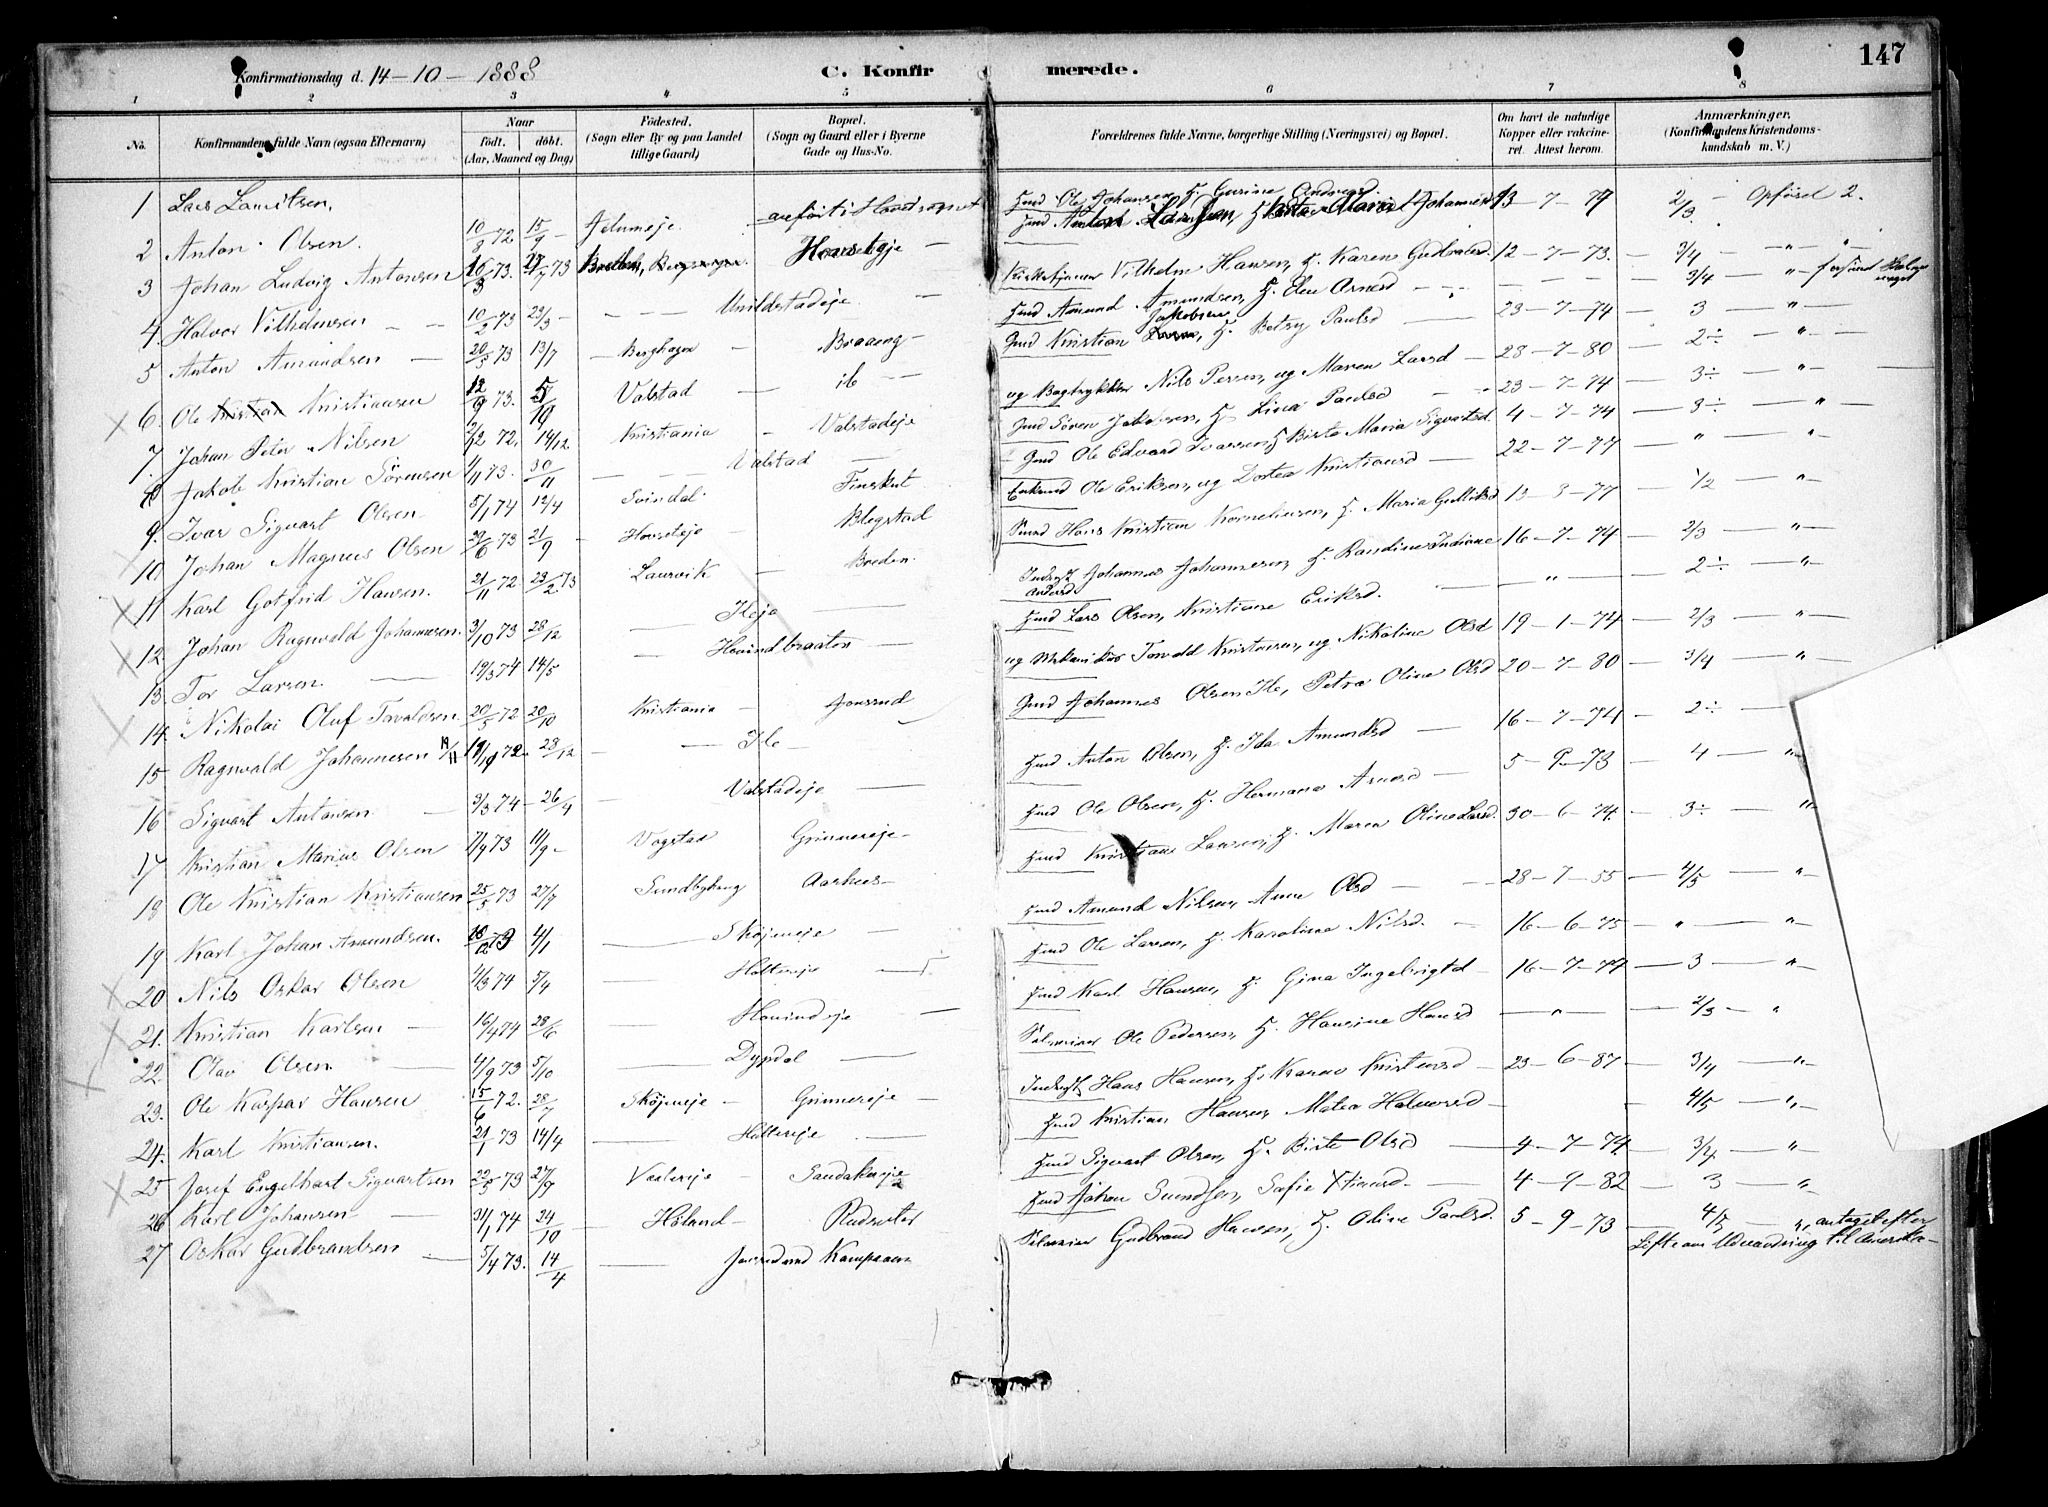 147
Konfirmationsdag d. 14-10-1888 C. Konfirmerede.
1 2 3 4 5 6 7 8
No. Konfirmandens fulde Navn (ogsaa Efternavn) Naar födt. döbt. (Aar, Maaned og Dag) Födested. (Sogn eller By og paa Landet tillige Gaard) Bopæl. (Sogn og Gaard eller i Byerne Gade og Hus-No. Forældrenes fulde Navne, borgerlige Stilling (Næringsvei) og Bopæl. Om havt de naturlige Kopper eller vakcineret. Attest herom. Anmærkninger. (Konfirmandens Kristendomskundskab m. V.)
1 Lars Lauritsen. anført i Hovedsognet
2 Anton Olsen. 10/8 72 15/9 - Gmd Ole Johansen, H. Gurine Andersd. 13-7-77 2/3 - Opførsel 2.
3 Johan Ludvig Antonsen 16/3 73. Houstøje Gmd
4 Halvor Vilhelmsen 10/2 73 23/3 - Vilhelm Hansen, H. Karen Gudbrandsd. 12-7-73. - 3/4 - " - "
5 Anton Amundsen 20/5 73 13/7 - Berghagen - Braaeng - Gmd Amund Amundsen, H. Elen Arnesd - 3/4 - "
6. Ole Kristian Kristiansen 12/9 73. 5/10 Valstad - ib - Gmd Kristian Jakobsen, H. Betzy Paulsd - 23-7-74 - 3 - " -
7. Johan Peter Nilsen 2/12 72. 14/12 Kristiania - Valstadeje ug Bogtrykker Nils Persen, ug Maren Larsd - 28-7-80 - 2÷ - " -
8 Jakob Kristian Sörensen 1/11 73. 30/11 - Valstad - Gmd Sören Jakobsen, H. Lina Paulsd - 23-7-74 - 3÷ - " -
9. Ivar Sigvart Olsen 5/1 74 12/4 Svindal - Finskut Gmd Ole Edvard Ivarsen, H. Birte Maria Sigvartsd. 4-7-74 - 3÷ - " -
10. Johan Magnus Olsen 29/6 73 21/9 - Housteje - Blegstad Enkemd Ole Eriksen, ug Dortea Kristiansd - 22-7-77 - " - " -
11 Karl Gotfrid Hansen. 21/11 72. 23/2 73 Laurvik - Breden. Smed Hans Kristian Kornelius en, H. Maria Gulliksd 13-3-77 - 1/2 - " -
12 Johan Ragnvald Johannesen. 3/10 73 28/12 - Ileje - Indrgst Johannes Johannesen, H. Randine Indiane Andersd. 16-7-74 - 2/3 - " -
13. Tor Larsen. 19/3 74 14/5 - Houindbraaten - Gmd Lars Olsen, Kristiane Eriksd. - " - 2÷ - " -
14. Nikolai Oluf Torvaldsen 20/5 72 20/10 Kristiania - Jonsrud ug Mekaniker Torvald Kristensen, ug Nikoline Olsd 19-1-74 - 2/3 - " -
15 Ragnvald Johannesen 19/11 72. 28/12 - Ile - Gmd Johannes Olsen Ile, Petra Oline Olsd 20-7-80 - 3/4 - " -
16 Sigvart Antonsen 3/3 74 - 26/4 - Valstadeje - Gmd Anton Olsen, H. Ida Amundsd - 16-7-74 - 2÷ -
17 Kristian Marius Olsen 7/7 73 11/9 - Vogstad Grinnereje - Gmd Ole Olsen, H. Hermana Arnesd - 5-9-73 - 4 - " -
18 Ole Kristian Kristiansen 25/5 73 27/7 Sundbyberg Aarhus - Gmd Kristian Larsen, H. Maren Oline Larsd. 30-6-74. - 3÷ - " -
19 Karl Johan Amundsen. 4/1 - Sköjeneje - Gmd Amund Nilsen, Anne Olsd - 28-7-55 - 4/5 - " -
20 Nils Oskar Olsen 4/3 74 5/4 - Holtereje - Gmd Ole Larsen, H. Karoline Nilsd. - 16-6-75 - " - " -
21. Kristian Karlsen - 16/4 74 28/6 - Houindeje - Gmd Karl Hansen, H. Gina Ingebrigtd - 16-7-74 - 3 - " -
22. Olav Olsen. 4/9 73 5/10 - Dypdal - Selveeier Ole Pedersen, H. Hansine Hansd - " - 2/3 - "
23. Ole Kaspar Hansen 15/6 72. 28/7 Sköjeneje - Grinnereje - Indrgst Hans Hansen, H. Karen Kristensd - 23-6-87 - 3/4 - " -
24. Karl Kristiansen. 73 14/4 - Holtereje - Gmd Kristian Hansen, Matea Halvorsd - 4/5 - " -
25 Josef Engelhart Sigvartsen 22/5 73 27/7 Vaalereje - Sandakereje Gmd Sigvart Olsen, H. Birte Olsd - 4-7-74 - 3/4 - "
26 Karl Johansen - 31/1 74 24/10 - Höland - Rudseter Gmd Johan Svendsen, Sofie - 4-9-82 - 3 - " -
27 Oskar Gudbrandsen - 5/4 73. 14/4 - Jonsrud Kampaaen Selveeier Gudbrand Hansen, H. Oline Paulsd. 5-9-73 - 4/5 - ", antaget efter
Löfte om Udvandring til Amerika -